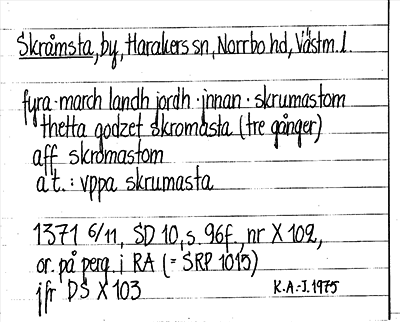 Skråmsta, by, Harakers sn, Norrbo hd, Västm. l.
fyra · march landh jordh · jnnan · skrumastom
thetta godzet skromasta (tre gånger)
aff skromastom
a.t. : vppa skrumasta
1371 6/11, SD 10, s. 96f., nr X 102,
or. på perg. i RA (= SRP 1015)
jfr DS X 103
K.A.-J. 1975